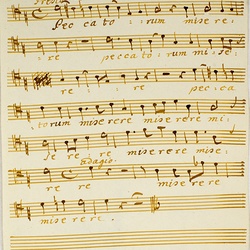 Pec ca to rum mise re
re peccato rum mise
re re pec ca
torum miserere miserere mi
se re re miserere mise
adagio.
re re miserere
miserere.